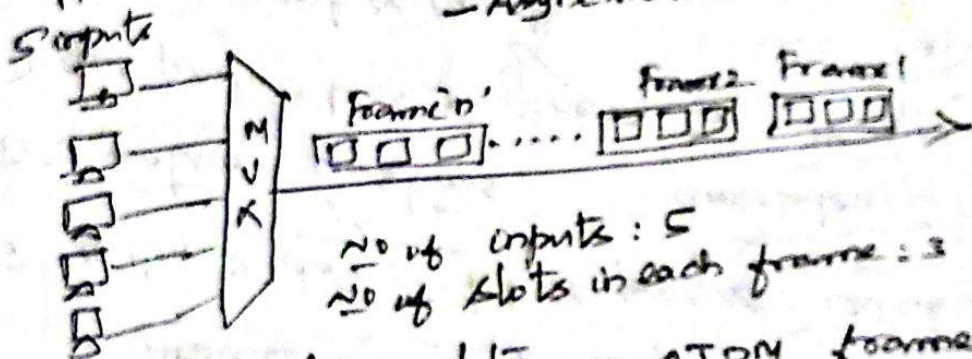 5 inputs
MUX
Frame 'n' ..... Frame 2 Frame 1
No of inputs : 5
No of slots in each frame : 3
ATDM frame